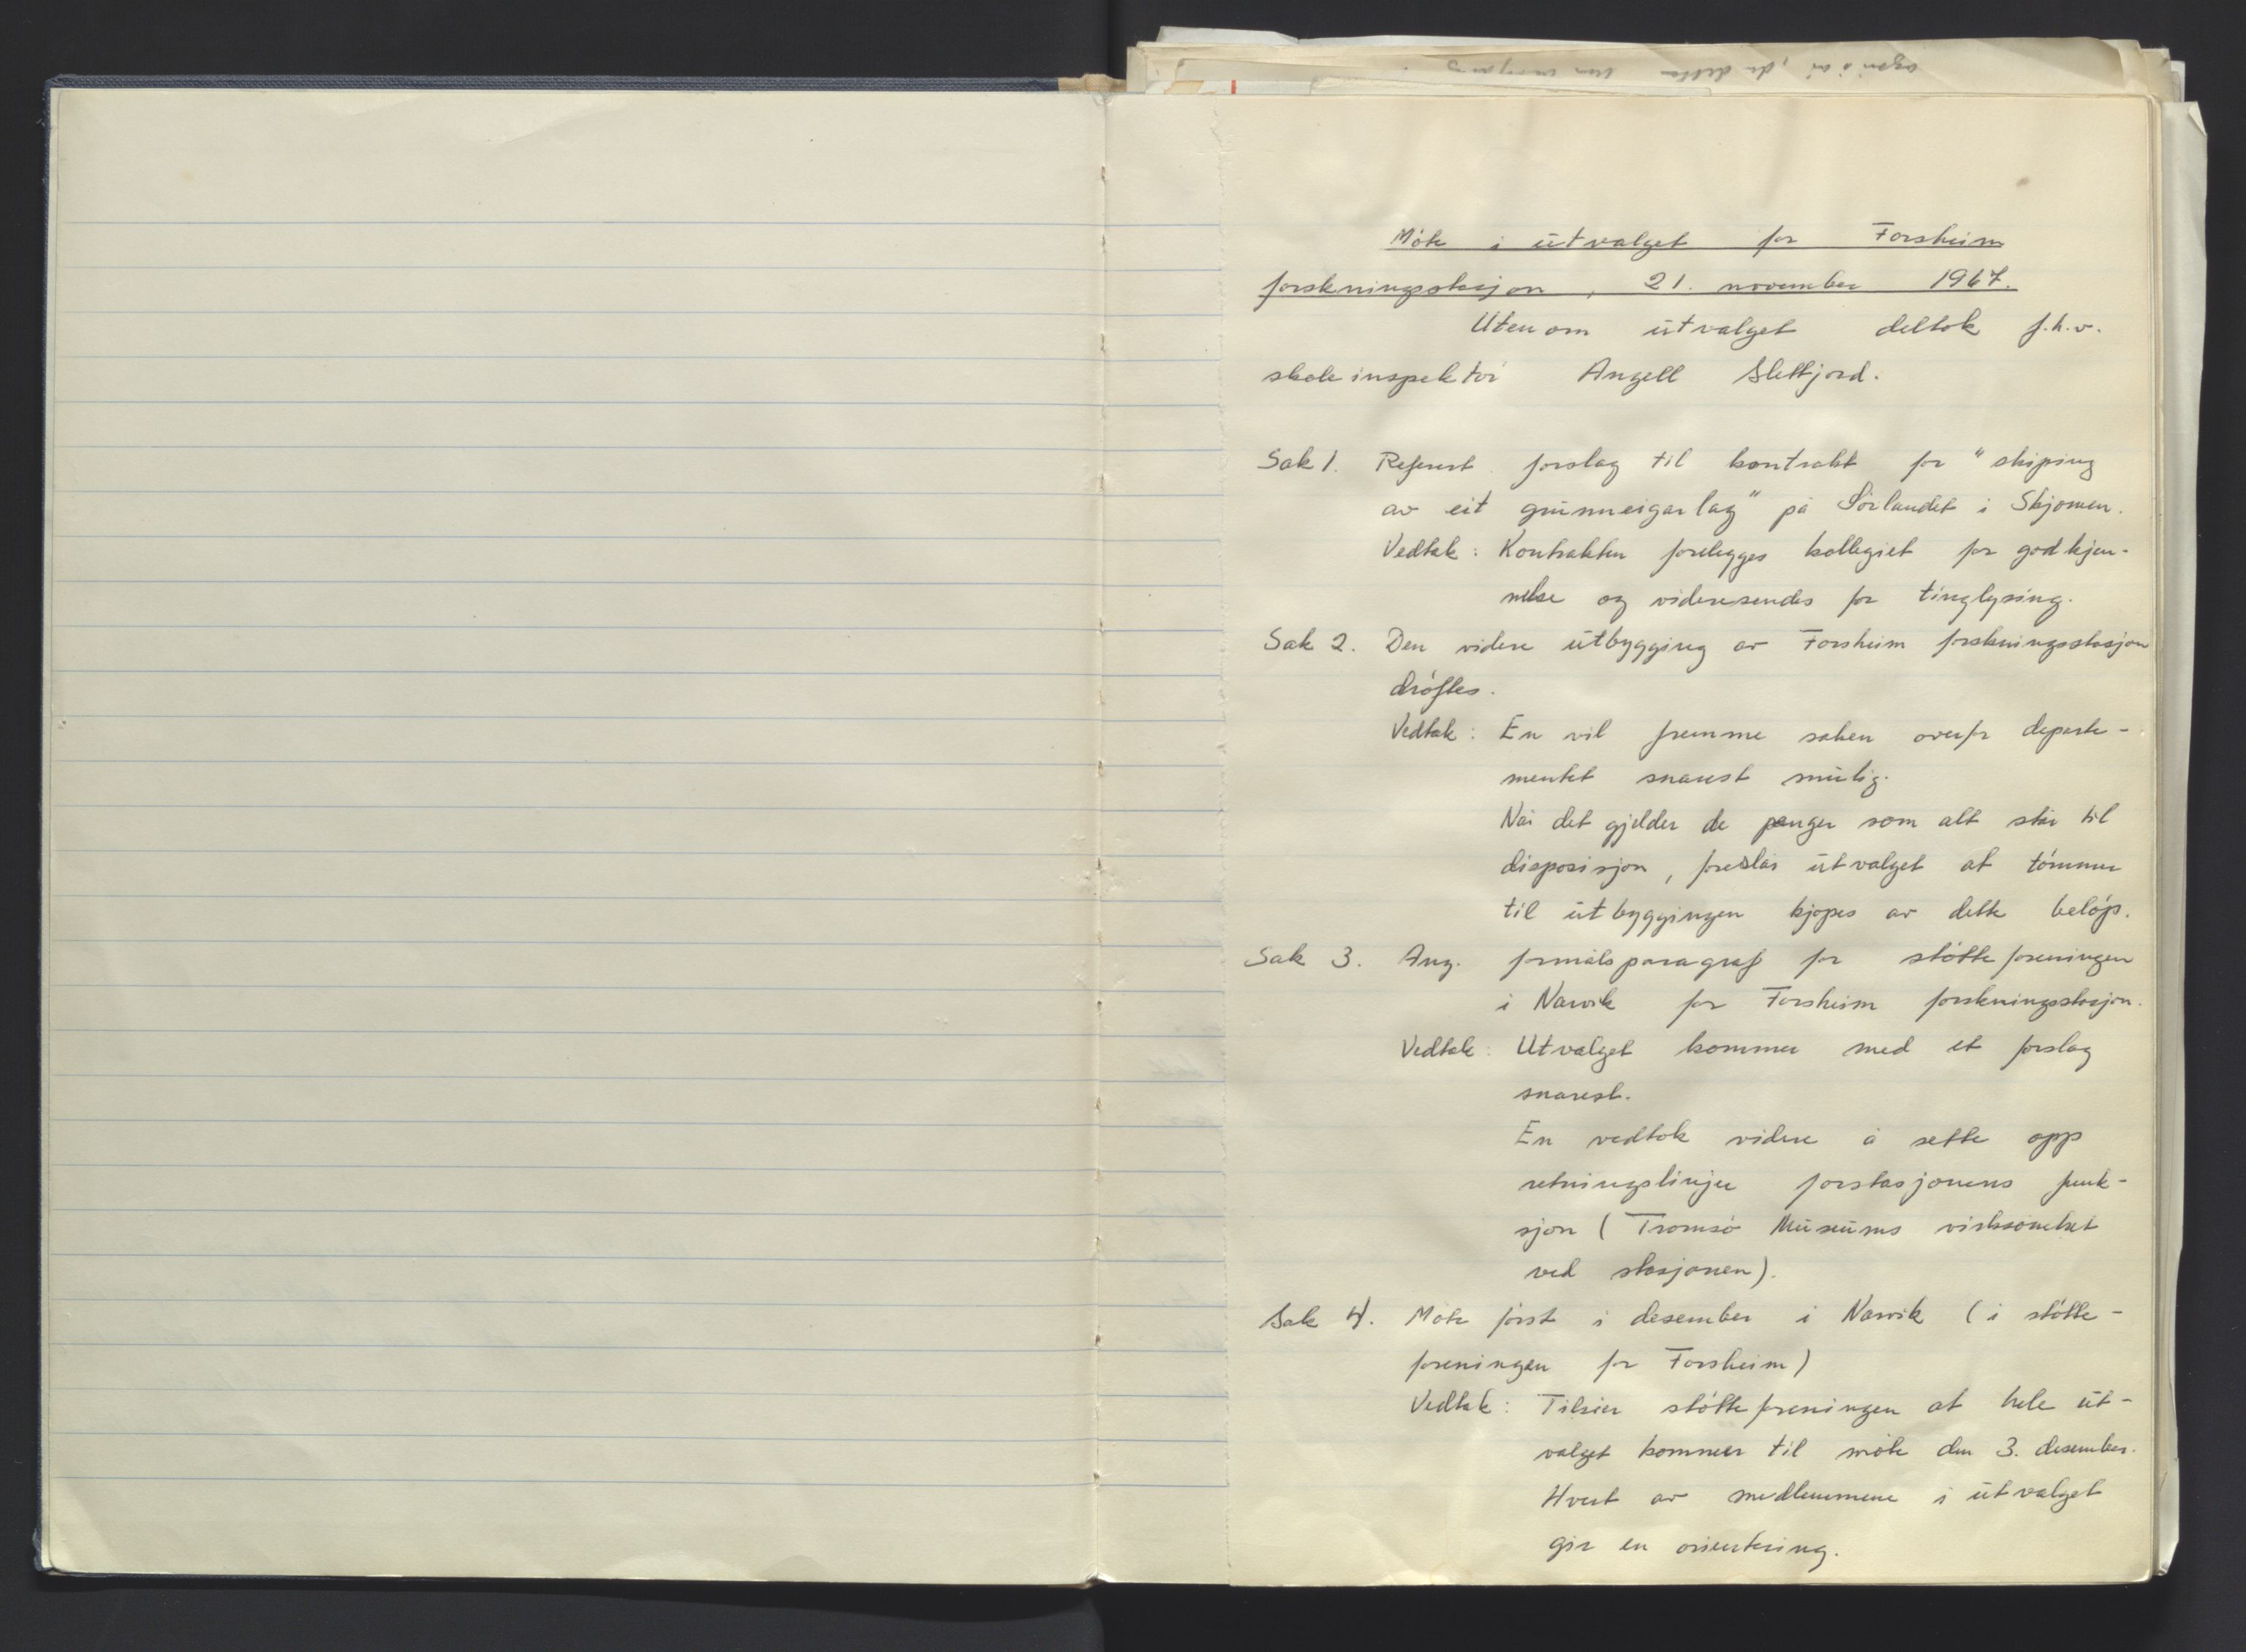 Möte i utvalget for Forsheim
forskningsstasjon, 21. november 1967.
Utenom utvalget deltok f.h.v.
skoleinspektör Angell Slettjord.
Sak 1. Referert forslag til kontrakt for "skiping
av eit grunneigarlag" på Sörlandet i Skjomen.
Vedtak: Kontrakten forelegges kollegiet for godkjen-
nelse og videresendes for tinglysing.
Sak 2. Den videre utbygging av Forsheim forskningsstasjon
dröftes.
Vedtak: En vil fremme saken overfor departe-
mentet snarest mulig.
Når det gjelder de penger som alt står til
disposisjon, foreslår utvalget at tömmer
til utbyggingen kjöpes av dette belöp.
Sak 3. Ang. formålsparagraf for stötteforeningen
i Narvik for Forsheim forskningsstasjon.
Vedtak: Utvalget kommer med et forslag
snarest.
En vedtok videre å sette opp
retningslinjer for stasjonens funk-
sjon (Tromsö Museums virksomhet
ved stasjonen).
Sak 4. Möte först i desember i Narvik (i stötte-
foreningen for Forsheim)
Vedtak: Tilsier stötteforeningen at hele ut-
valget kommer til möte den 3. desember.
Hvert av medlemmene i utvalget
gir en orientering.